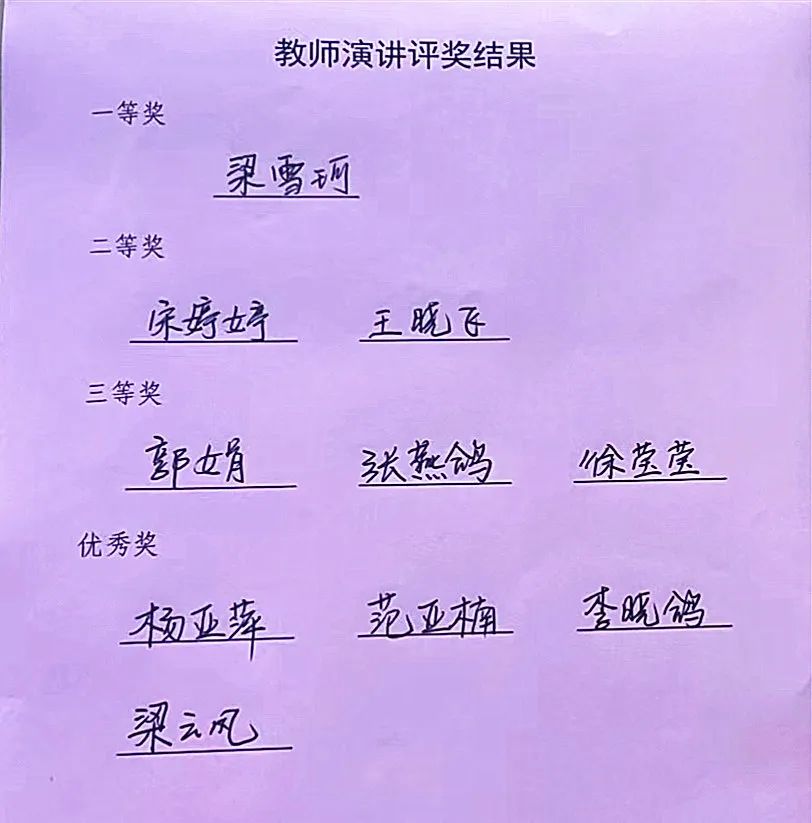 教师演讲评奖结果
一等奖
梁雪珂
二等奖
宋婷婷 王晓飞
三等奖
郭娟 张燕鸽 徐莹莹
优秀奖
杨亚萍 范亚楠 李晓鸽
梁云风